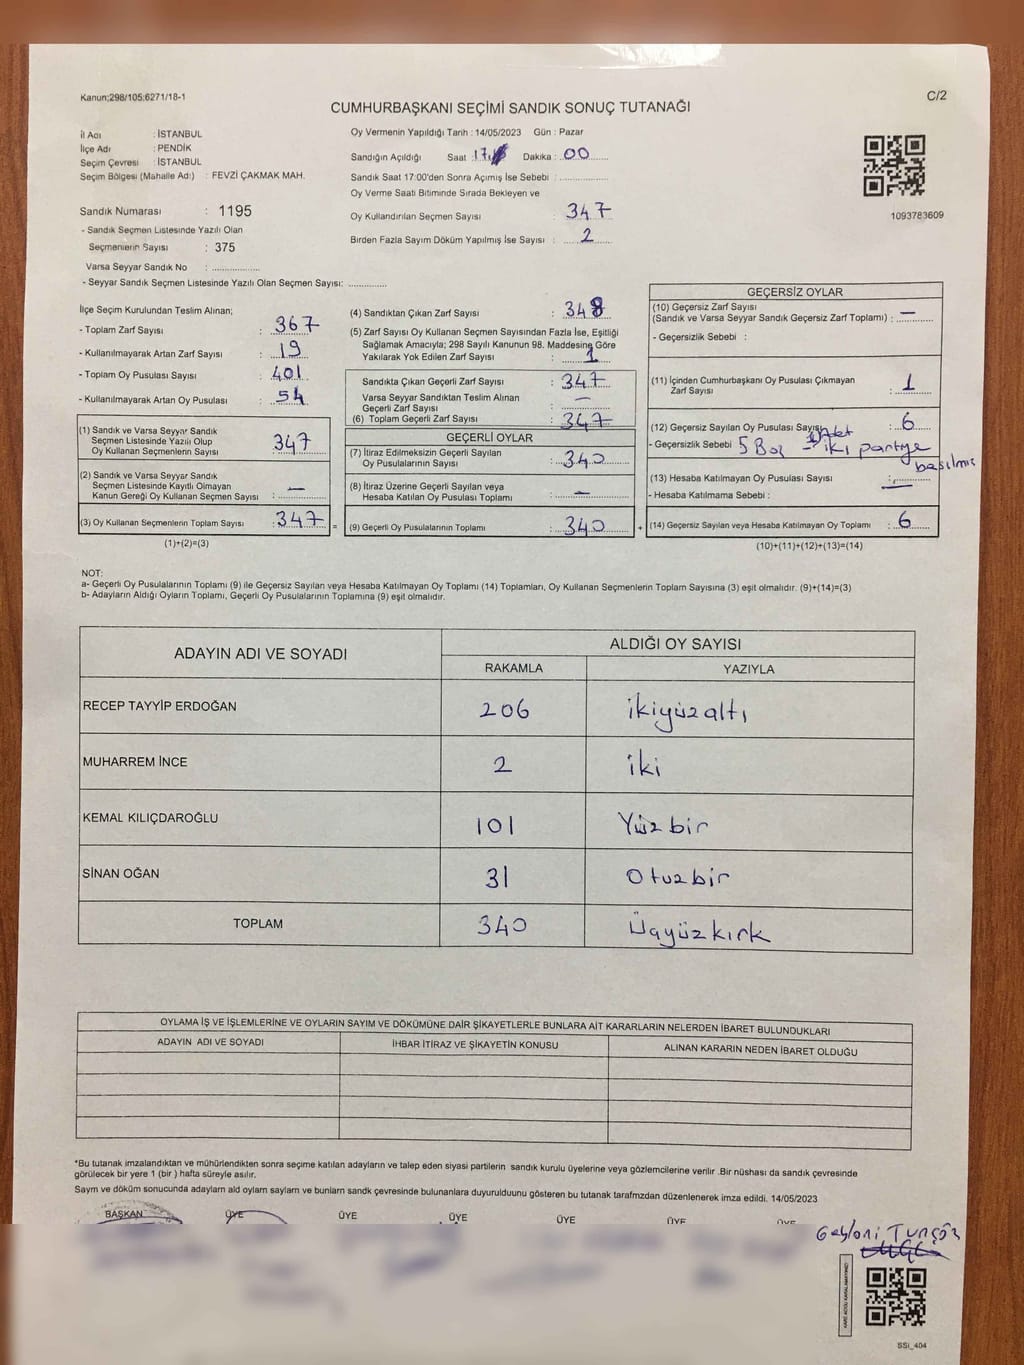 Kanun:298/105:6271/18-1
C/2
CUMHURBAŞKANI SEÇİMİ SANDIK SONUÇ TUTANAĞI
İl Adı : İSTANBUL
İlçe Adı : PENDİK
Seçim Çevresi : İSTANBUL
Seçim Bölgesi (Mahalle Adı) : FEVZİ ÇAKMAK MAH.
Sandık Numarası : 1195
- Sandık Seçmen Listesinde Yazılı Olan
Seçmenlerin Sayısı : 375
Varsa Seyyar Sandık No : ..................
- Seyyar Sandık Seçmen Listesinde Yazılı Olan Seçmen Sayısı: ..............
Oy Vermenin Yapıldığı Tarih : 14/05/2023 Gün : Pazar
Sandığın Açıldığı Saat : 17 Dakika : 00
Sandık Saat 17:00'den Sonra Açılmış İse Sebebi : ..................
Oy Verme Saati Bitiminde Sırada Bekleyen ve
Oy Kullandırılan Seçmen Sayısı : 347
Birden Fazla Sayım Döküm Yapılmış İse Sayısı : 2
1093783609
İlçe Seçim Kurulundan Teslim Alınan;
- Toplam Zarf Sayısı : 367
- Kullanılmayarak Artan Zarf Sayısı : 19
- Toplam Oy Pusulası Sayısı : 401
- Kullanılmayarak Artan Oy Pusulası : 54
(1) Sandık ve Varsa Seyyar Sandık
Seçmen Listesinde Yazılı Olup
Oy Kullanan Seçmenlerin Sayısı : 347
(2) Sandık ve Varsa Seyyar Sandık
Seçmen Listesinde Kayıtlı Olmayan
Kanun Gereği Oy Kullanan Seçmen Sayısı : —
(3) Oy Kullanan Seçmenlerin Toplam Sayısı : 347 =
(1)+(2)=(3)
(4) Sandıktan Çıkan Zarf Sayısı : 348
(5) Zarf Sayısı Oy Kullanan Seçmen Sayısından Fazla İse, Eşitliği
Sağlamak Amacıyla; 298 Sayılı Kanunun 98. Maddesine Göre
Yakılarak Yok Edilen Zarf Sayısı : 1
Sandıkta Çıkan Geçerli Zarf Sayısı : 347
Varsa Seyyar Sandıktan Teslim Alınan
Geçerli Zarf Sayısı : —
(6) Toplam Geçerli Zarf Sayısı : 347
GEÇERLİ OYLAR
(7) İtiraz Edilmeksizin Geçerli Sayılan
Oy Pusulalarının Sayısı : 340
(8) İtiraz Üzerine Geçerli Sayılan veya
Hesaba Katılan Oy Pusulası Toplamı : —
(9) Geçerli Oy Pusulalarının Toplamı : 340 +
GEÇERSİZ OYLAR
(10) Geçersiz Zarf Sayısı
(Sandık ve Varsa Seyyar Sandık Geçersiz Zarf Toplamı) : —
- Geçersizlik Sebebi :
(11) İçinden Cumhurbaşkanı Oy Pusulası Çıkmayan
Zarf Sayısı : 1
(12) Geçersiz Sayılan Oy Pusulası Sayısı : 6
- Geçersizlik Sebebi 5 Boş - iki partiye
basılmış
(13) Hesaba Katılmayan Oy Pusulası Sayısı : —
- Hesaba Katılmama Sebebi :
(14) Geçersiz Sayılan veya Hesaba Katılmayan Oy Toplamı : 6
(10)+(11)+(12)+(13)=(14)
NOT:
a- Geçerli Oy Pusulalarının Toplamı (9) ile Geçersiz Sayılan veya Hesaba Katılmayan Oy Toplamı (14) Toplamları, Oy Kullanan Seçmenlerin Toplam Sayısına (3) eşit olmalıdır. (9)+(14)=(3)
b- Adayların Aldığı Oyların Toplamı, Geçerli Oy Pusulalarının Toplamına (9) eşit olmalıdır.
ADAYIN ADI VE SOYADI
ALDIĞI OY SAYISI
RAKAMLA YAZIYLA
RECEP TAYYİP ERDOĞAN 206 ikiyüzaltı
MUHARREM İNCE 2 iki
KEMAL KILIÇDAROĞLU 101 Yüzbir
SİNAN OĞAN 31 Otuzbir
TOPLAM 340 Üçyüzkırk
OYLAMA İŞ VE İŞLEMLERİNE VE OYLARIN SAYIM VE DÖKÜMÜNE DAİR ŞİKAYETLERLE BUNLARA AİT KARARLARIN NELERDEN İBARET BULUNDUKLARI
ADAYIN ADI VE SOYADI İHBAR İTİRAZ VE ŞİKAYETİN KONUSU ALINAN KARARIN NEDEN İBARET OLDUĞU
*Bu tutanak imzalandıktan ve mühürlendikten sonra seçime katılan adayların ve talep eden siyasi partilerin sandık kurulu üyelerine veya gözlemcilerine verilir .Bir nüshası da sandık çevresinde
görülecek bir yere 1 (bir ) hafta süreyle asılır.
Sayım ve döküm sonucunda adayların aldı oyların sayların ve bunların sandk çevresinde bulunanlara duyurulduunu gösteren bu tutanak tarafmzdan düzenlenerek imza edildi. 14/05/2023
BAŞKAN ÜYE ÜYE ÜYE ÜYE ÜYE ÜYE
SSi_404